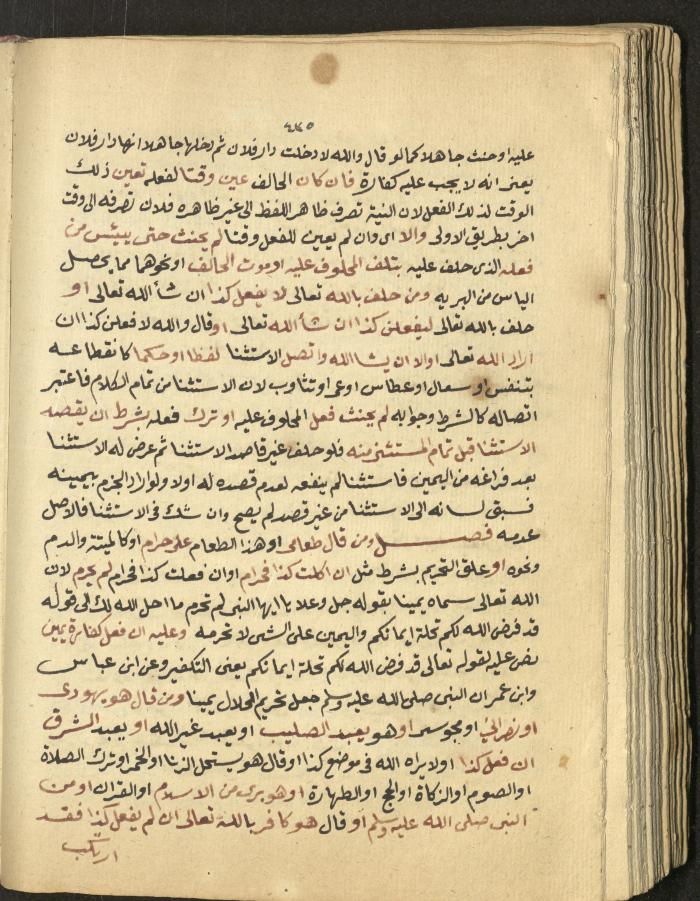 ٤٣٥
عليه او حنث جاهلا كما لو قال والله لا دخلت دار فلان ثم دخلها جاهلا انها دار فلان
يعنى انه لا يجب عليه كفارة فان كان الحالف عين وقتا لفعله تعين ذلك
الوقت لذلك الفعل لان النية تصرف ظاهر اللفظ الى غير ظاهره فلان تصرفه الى وقت
اخر بطريق الاولى والا اى وان لم يعين للفعل وقتا لم يحنث حتى ييئس من
فعله الذى حلف عليه بتلف المحلوف عليه او موت الحالف او نحوهما مما يحصل
الياس من البر به ومن حلف بالله تعالى لا يفعل كذا ان شأ الله تعالى او
حلف بالله تعالى ليفعلن كذا ان شأ الله تعالى او قال والله لا فعلن كذا ان
اراد الله تعالى او الا ان يشا الله واتصل الاستثنا لفظا او حكما كانقطاعه
بتنفس او سعال او عطاس او عى او تثاوب لان الاستثنا من تمام الكلام فاعتبر
اتصاله كالشرط وجوابه لم يحنث فعل المحلوف عليه او ترك فعله بشرط ان يقصد
الاستثنا قبل تمام المستثنى منه فلو حلف غير قاصد الاستثنا ثم عرض له الاستثنا
بعد فراغه من اليمين فاستثنا لم ينفعه لعدم قصده له اولا ولو اراد الجزم بيمينه
فسبق لسانه الى الاستثنا من غير قصد لم يصح وان شك فى الاستثنا فالاصل
عدمه فصل ومن قال طعامى او هذا الطعام على حرام او كالميتة والدم
ونحوه او علق التحريم بشرط مثل ان اكلت كذا فحرام او ان فعلت كذا فحرام لم يحرم لان
الله تعالى سماه يمينا بقوله جل وعلا يا ايها النبى لم تحرم ما احل الله لك الى قوله
قد فرض الله لكم تحلة ايمانكم واليمين على الشى لا تحرمه وعليه ان فعل كفارة يمين
نص عليه لقوله تعالى قد فرض الله لكم تحلة ايمانكم يعنى التكفير وعن ابن عباس
وابن عمر ان النبى صلى الله عليه وسلم جعل تحريم الحلال يمينا ومن قال هو يهودى
او نصرانى او مجوسى او هو يعبد الصليب او يعبد غير الله او يعبد الشرق
ان فعل كذا او لا يراه الله فى موضع كذا او قال هو يستحل الزنا او الخمر او ترك الصلاة
او الصوم او الزكاة او الحج او الطهارة او هو برى من الاسلام او القران او من
النبى صلى الله عليه وسلم او قال هو كافر بالله تعالى ان لم يفعل كذا فقد
ارتكب